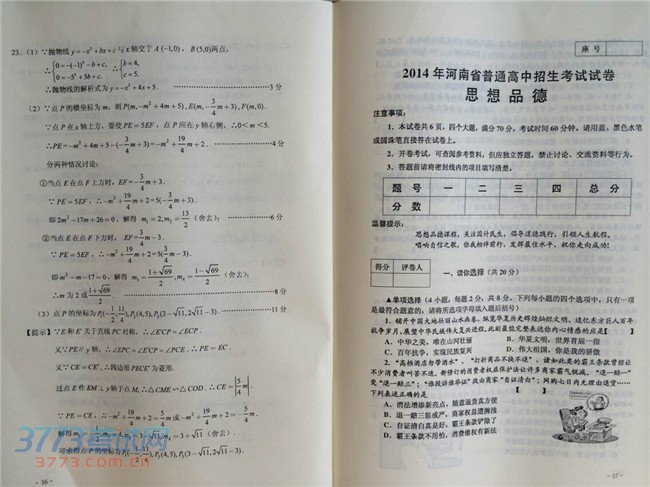 23.（1）∵抛物线 y=-x²+bx+c 与 x 轴交于 A (-1,0)， B (5,0)两点，
∴ { 0=-(-1)²-b+c, 0=-5²+5b+c. ∴ { b=4, c=5.
∴抛物线的解析式为 y=-x²+4x+5. ……………3 分
（2）∵点 P 的横坐标为 m，则 P(m,-m²+4m+5), E(m,-3/4m+3), F(m,0).
∵点 P 在 x 轴上方，要使 PE=5EF，点 P 应在 y 轴右侧，∴0<m<5.
∴PE=-m²+4m+5-(-3/4m+3)=-m²+19/4m+2. ……………4 分
分两种情况讨论：
①当点 E 在点 F 上方时，EF=-3/4m+3.
∵PE=5EF，∴-m²+19/4m+2=5(-3/4m+3).
即 2m²-17m+26=0，解得 m₁=2, m₂=13/2（舍去）；……………6 分
②当点 E 在点 F 下方时，EF=3/4m-3.
∵PE=5EF，∴-m²+19/4m+2=5(3/4m-3).
即 m²-m-17=0，解得 m₃=(1+√69)/2, m₄=(1-√69)/2（舍去）；
∴m 为 2 或 (1+√69)/2. ……………8 分
（3）点 P 的坐标为 P₁(-1/2,11/4), P₂(4,5), P₃(3-√11,2√11-3). ……………11 分
【提示】∵E 和 E′ 关于直线 PC 对称，∴∠E′CP=∠ECP.
又∵PE∥y 轴，∴∠EPC=∠E′CP=∠PCE. ∴PE=EC.
又∵CE=CE′，∴四边形 PECE′ 为菱形.
过点 E 作 EM⊥y 轴于点 M，∴△CME∽△COD. ∴CE=|5/4m|.
∵PE=CE，∴-m²+19/4m+2=5/4m 或 -m²+19/4m+2=-5/4m.
解得 m₃=3-√11, m₄=3+√11（舍去）.
可求得点 P 的坐标为 P₁(-1/2,11/4), P₂(4,5), P₃(3-√11,2√11-3).
3773考试网
www.3773.com.cn
- 16 -
座 号
2014 年河南省普通高中招生考试试卷
思 想 品 德
注意事项：
1．本试卷共 6 页，四个大题，满分 70 分，考试时间 60 分钟。请用蓝、黑色水笔
或圆珠笔直接答在试卷上。
2．开卷考试，可查阅参考资料，但应独立答题，禁止讨论、交流资料等行为。
3．答题前请将密封线内的项目填写清楚。
题 号 一 二 三 四 总 分
分 数
温馨提示：
思想品德课程，关注国计民生，倡导道德践行，引领人生航程。
唱响自信之歌，你我相伴前行，发挥最佳水平，祝你走向成功！
得分 评卷人
一、请你选择（共 20 分）
▲单项选择（4 小题，每题 2 分，共 8 分。下列每小题的四个选项中，只有一项
是最符合题意的，请将所选项字母填入题后括号）
1．铺开中国大地壮丽山水画卷，纵览华夏历史辉煌灿烂文明，追忆东方巨人百年
抗争岁月，展望中华民族伟大复兴前程，此刻最能完整表达你内心情感的应是【 】
A．中华之美，难在山河壮丽 B．华夏文明，世界首屈一指
C．百年抗争，实现民族复兴 D．伟大祖国，你是我的骄傲
2．“高档酒店自带酒水”、“打折商品不换不退”，诸如此类的霸王条款曾经让
不少消费者叫苦不迭，新修订的消费者权益保护法让许多商家霸气锐减，“退一赔一”
变“退一赔三”；“维权诉讼举证”改由商家“自证清白”；网购七日内无理由退货……
下列表述正确的是 【 】
A．消法增添新亮点，随意退货真方便
B．退一赔三惩戒严，商家权益遭搁浅
C．自证清白真是好，霸王条款铲除了
D．霸王条款不用怕，消费维权有新法
- 17 -